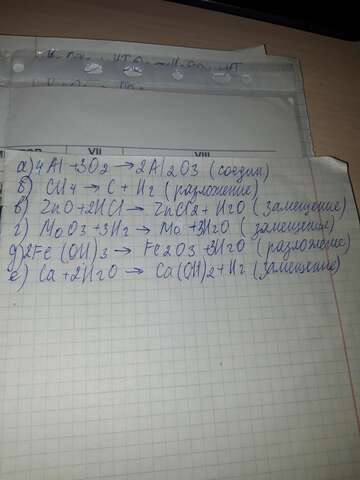 VII VIII
а) 4Al + 3O2 → 2Al2O3 (соедин)
б) CH4 → C + Hг (разложение)
в) ZnO + 2HCl → ZnCl2 + HгO (замещение)
г) MoO3 + 3Hг → Mo + 3HгO (замещение)
д) 2Fe(OH)3 → Fe2O3 + 3HгO (разложение)
е) Ca + 2HгO → Ca(OH)2 + Hг (замещение)